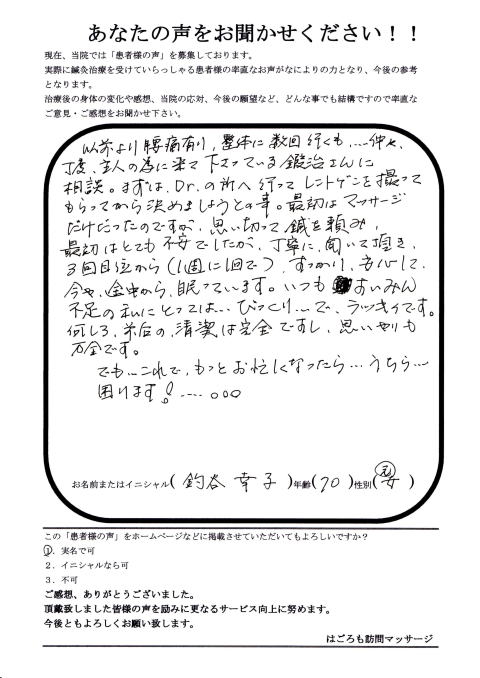 あなたの声をお聞かせください！！
現在、当院では「患者様の声」を募集しております。
実際に鍼灸治療を受けていらっしゃる患者様の率直なお声がなによりの力となり、今後の参考
となります。
治療後の身体の変化や感想、当院の応対、今後の願望など、どんな事でも結構ですので率直な
ご意見・ご感想をお聞かせ下さい。
以前より腰痛有り、整体に数回行くも……仲々、
丁度、主人の為に来て下さっている鍛治さんに
相談。まずは、Dr.の所へ行ってレントゲンを撮って
もらってから決めましょうとの事。最初はマッサージ
だけだったのですが、思い切って鍼を頼み、
最初はとても不安でしたが、丁寧に、聞いて頂き、
3回目位から(1週に1回で)、すっかり、安心して、
今や、途中から、眠っています。いつも すいみん
不足の私にとっては…びっくり…で、ラッキィです。
何しろ、前后の、清潔は完全ですし、思いやりも
万全です。
でも…これで、もっとお忙しくなったら…うちら…
困ります!……。。。
お名前またはイニシャル( 釣谷 幸子 )年齢(70)性別(女)
この「患者様の声」をホームページなどに掲載させていただいてもよろしいですか？
１．実名で可
２．イニシャルなら可
３．不可
ご感想、ありがとうございました。
頂戴致しました皆様の声を励みに更なるサービス向上に努めます。
今後ともよろしくお願い致します。
はごろも訪問マッサージ